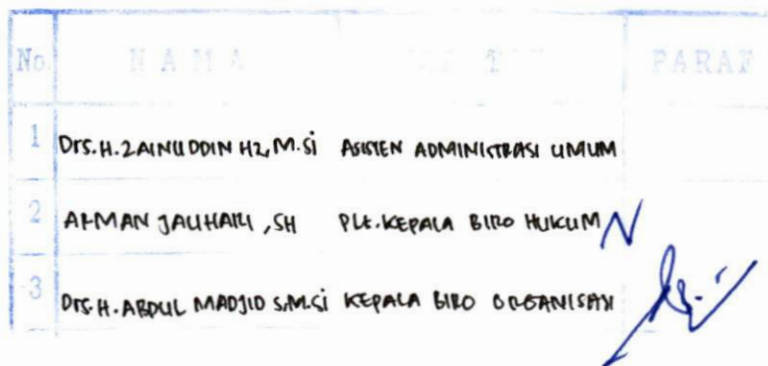 No. NAMA PARAF
1 Drs. H. ZAINUDDIN HZ, M.Si ASISTEN ADMINISTRASI UMUM
2 ARMAN JAUHARI, SH PLt. KEPALA BIRO HUKUM
3 Drs. H. ABDUL MADJID S, M.Si KEPALA BIRO ORGANISASI